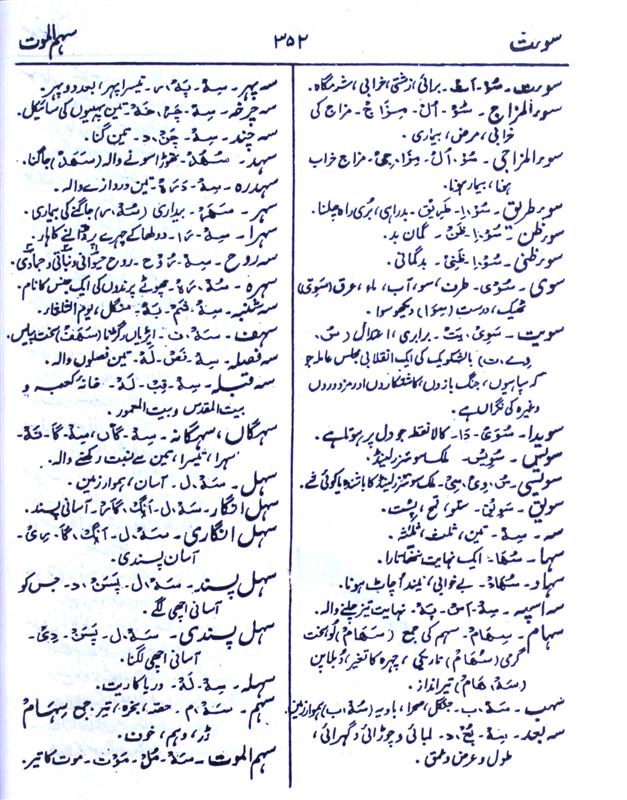 سہم الموت ۳۵۲ سوءت
سوءت۔ سُوْ۔اَت۔ برائی، زشتی، خرابی، شرمگاہ۔
سوء المزاج۔ سُوْ۔اَلْ۔مِزَاجْ۔ مزاج کی
خرابی، مرض، بیماری۔
سوء المزاجی۔ سُوْ۔اَلْ۔مِزَا۔جِیْ۔ مزاج خراب
ہونا، بیمار ہونا۔
سوء طریق۔ سُوْ۔طَرِیْق۔ بدراہی، بری راہ چلنا۔
سوء ظن۔ سُوْ۔ظَنْ۔ گمان بد۔
سوء ظنی۔ سُوْ۔ظَنِّیْ۔ بدگمانی۔
سوی۔ سُوْیْ۔ طرف، سو، آب، ماء، عرق (سَوِیّ)
ٹھیک، درست (سِوَا) دیکھو سوا۔
سویت۔ سَوِیْ۔یَتْ۔ برابری، اعتدال (س۔
وے۔ت) بالشویک کی ایک انقلابی مجلس عاملہ جو
کہ سپاہیوں، جنگ بازوں، کاشتکاروں اور مزدوروں
وغیرہ کی نگراں ہے۔
سویدا۔ سُوَیْ۔دَا۔ کالا نقطہ جو دل پر ہوتا ہے۔
سوئس۔ سْوِیْس۔ ملک سوئٹزرلینڈ۔
سوئسی۔ س۔وِیْ۔سِیْ۔ ملک سوئٹزرلینڈ کا باشندہ یا کوئی شے۔
سویق۔ سَوِیْق۔ ستو، تلخ، پشت۔
سہ۔ سِہْ۔ تین، ثلث، ثلثہ۔
سہا۔ سُہَا۔ ایک نہایت ننھا تارا۔
سہاد۔ سُہَادْ۔ بے خوابی، نیند اچاٹ ہونا۔
سہ اسپہ۔ سِہْ۔اَسْ۔پَہْ۔ نہایت تیز چلنے والہ۔
سہام۔ سِہَامْ۔ سہم کی جمع (سَہَامْ) لو سخت
گرمی (سُہَامْ) تاریکی، چہرہ کا تغیر، دبلا پن
(سَہْ۔ہَامْ) تیرانداز۔
سہب۔ سَہْ۔ب۔ جنگل، صحرا، بادیہ (سُہْ۔ب) ہموار زمین۔
سہ بعد۔ سِہْ۔بُعْ۔د۔ لمبائی و چوڑائی و گہرائی،
طول و عرض و عمق۔
سہ پہر۔ سِہْ۔پَہْ۔ر۔ تیسرا پہر، بعد دوپہر۔
سہ چرخہ۔ سِہْ۔چَرْ۔خَہْ۔ تین پہیوں کی سائیکل۔
سہ چند۔ سِہْ۔چَنْ۔د۔ تین گنا۔
سہد۔ سُہُدْ۔ تھوڑا سونے والہ (سَہَدْ) جاگنا۔
سہ درہ۔ سِہْ۔دَرَہْ۔ تین دروازے والہ۔
سہر۔ سَہَرْ۔ بیداری (سُہْ۔ر) جاگنے کی بیماری۔
سہرا۔ سِہْ۔رَا۔ دولھا کے چہرے پر ڈالنے کا ہار۔
سہ روح۔ سِہْ۔رُوْح۔ روح حیوانی و نباتی و جمادی۔
سہرہ۔ سُہْ۔رَہْ۔ چھوٹے پرندوں کی ایک جنس کا نام۔
سہ شنبہ۔ سِہْ۔شَمْ۔بَہْ۔ منگل، یوم الثلثاء۔
سہف۔ سَہْ۔ف۔ ایڑیاں رگڑنا (سَہَفْ) سخت پیاس۔
سہ فصلہ۔ سِہْ۔فَصْ۔لَہْ۔ تین فصلوں والہ۔
سہ قبلہ۔ سِہْ۔قِبْ۔لَہْ۔ خانۂ کعبہ و
بیت المقدس و بیت المعمور۔
سہگاں، سہگانہ۔ سِہْ۔گَاں، سِہْ۔گَا۔نَہْ۔
تہرا، تیسرا، تین سے نسبت رکھنے والہ۔
سہل۔ سَہْ۔ل۔ آسان، ہموار زمین۔
سہل انگار۔ سَہْ۔ل۔اَنْگ۔گَارْ۔ آسانی پسند۔
سہل انگاری۔ سَہْ۔ل۔اَنْگ۔گَا۔رِیْ۔
آسان پسندی۔
سہل پسند۔ سَہْ۔ل۔پَسَنْ۔د۔ جس کو
آسانی اچھی لگے۔
سہل پسندی۔ سَہْ۔ل۔پَسَنْ۔دِیْ۔
آسانی اچھی لگنا۔
سہلہ۔ سِہْ۔لَہْ۔ دریا کا ریت۔
سہم۔ سَہْ۔م۔ حصہ، بخرہ، تیر جمع سِہَامْ
ڈر، وہم، خوف۔
سہم الموت۔ سَہْ۔مُلْ۔مَوْت۔ موت کا تیر۔